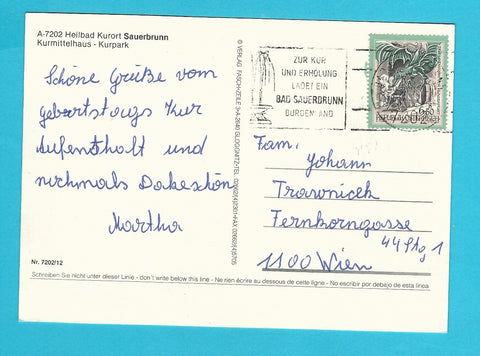 A-7202 Heilbad Kurort Sauerbrunn
Kurmittelhaus - Kurpark
Schöne Grüße vom
Geburtstags Kur
Aufenthalt und
nochmals Dakeschön
Martha
Nr. 7202/12
© VERLAG
ZUR KUR
UND ERHOLUNG
LADET EIN
BAD SAUERBRUNN
BURGENLAND
REPUBLIK ÖSTERREICH
Fam.
Johann
Travnicek
Fernkorngasse
44 Stg 1
1100 Wien
Schreiben Sie nicht unter dieser Linie - don't write below this line - Ne rien écrire au dessous de cette ligne - No escribir por debajo de esta linea